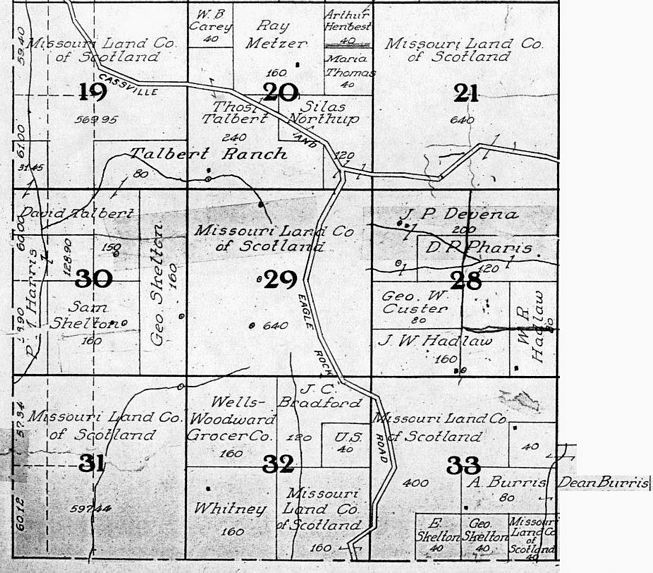 59.40
Missouri Land Co.
of Scotland
19
569.95
61.00
31.45
CASSVILLE
W. B
Carey
40
Ray
Metzer
160
Arthur
Henbest
40
Maria
Thomas
40
20
Thos.
Talbert
240
Silas
Northup
120
AND
Talbert Ranch
80
Missouri Land Co.
of Scotland
21
640
David Talbert
60.00
128.90
150
30
Harris
Sam
Skelton
160
Geo. Skelton
160
Missouri Land Co
of Scotland
29
640
EAGLE
ROCK
J P Devena
200
D. P. Pharis
120
28
Geo. W
Custer
80
J W Hadlaw
160
W R
Hadlaw
80
57.34
Missouri Land Co.
of Scotland
31
597.44
60.12
Wells-
Woodward
Grocer Co.
160
J. C.
Bradford
120
U.S.
40
32
Whitney
160
Missouri
Land Co.
of Scotland
160
ROAD
Missouri Land Co
of Scotland
33
400
40
A Burris
80
Dean Burris
E.
Skelton
40
Geo.
Skelton
40
Missouri
Land Co
of
Scotland
40